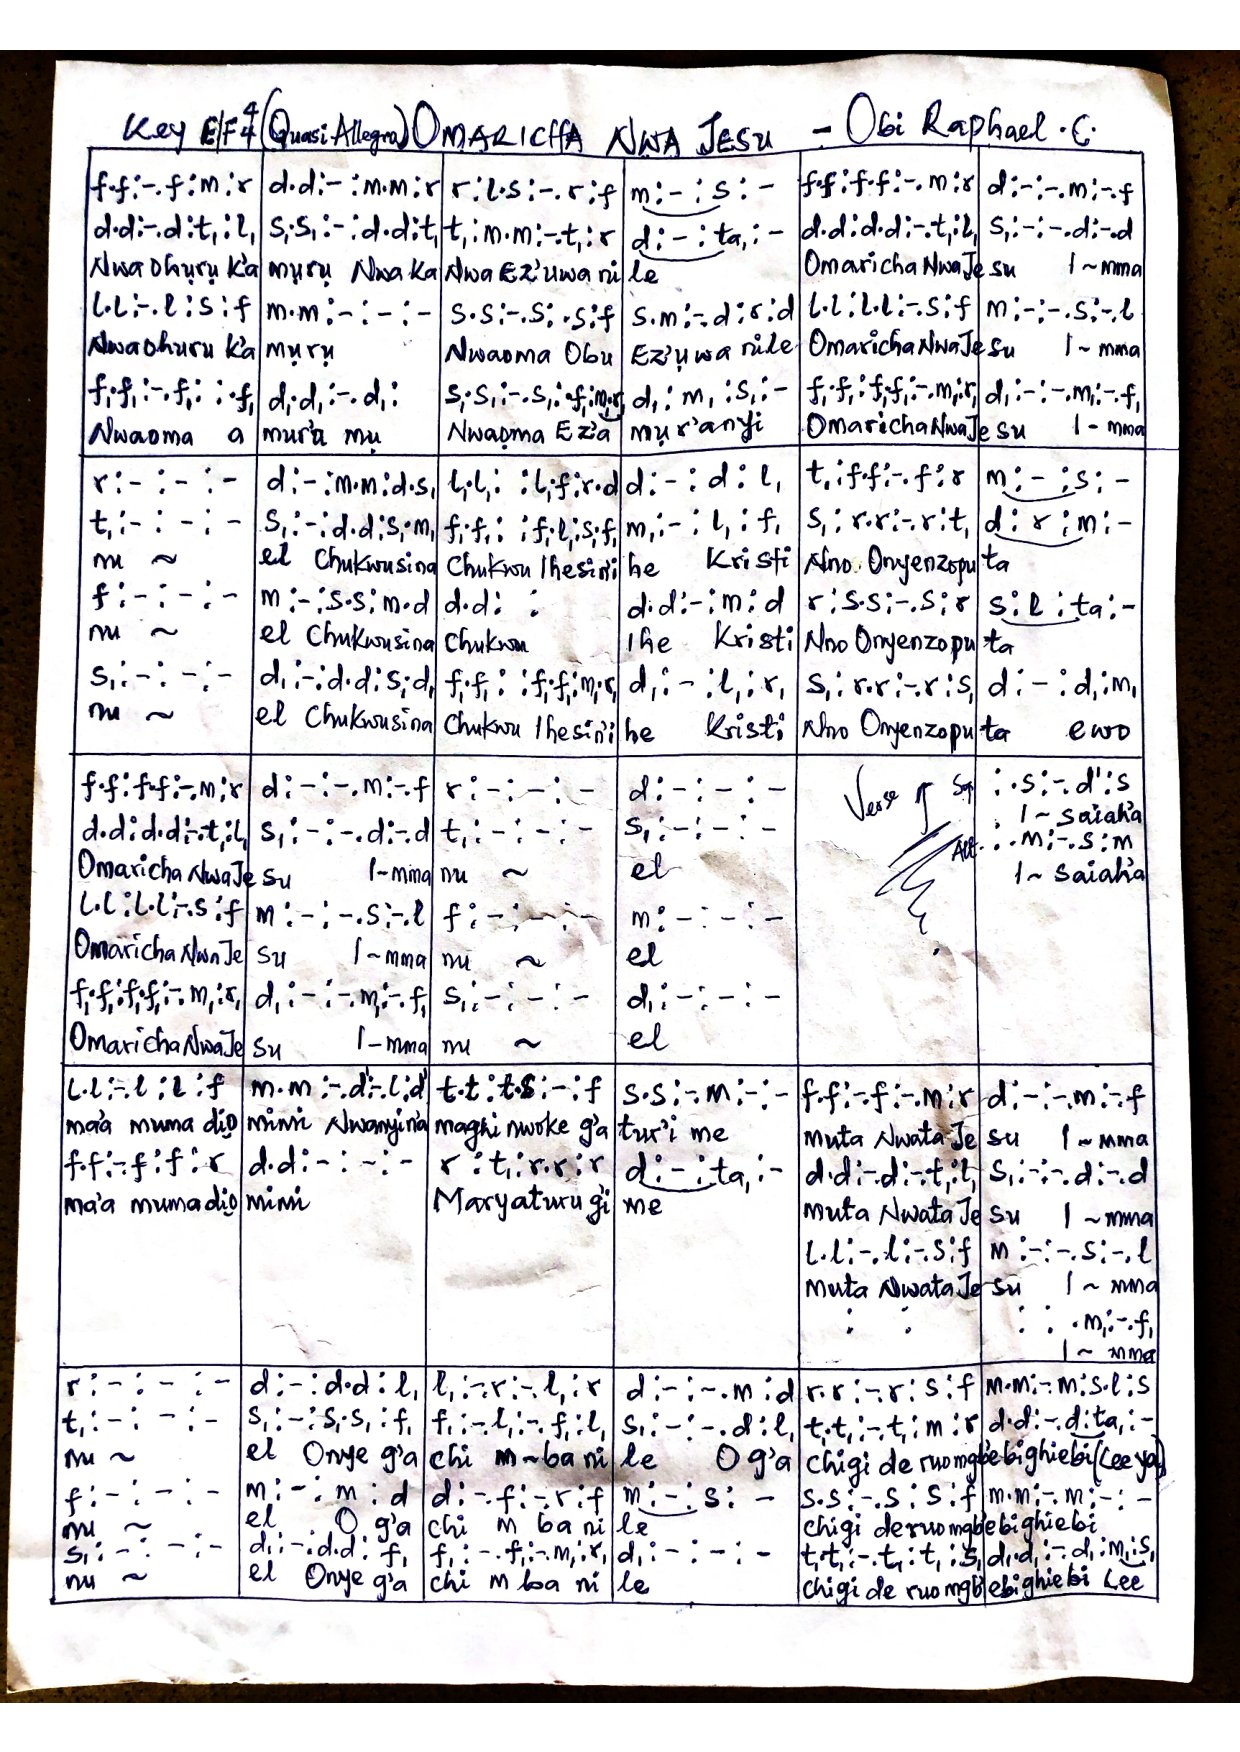 Key E/F 4/4 (Quasi Allegro) OMARICHA NWA JESU - Obi Raphael .C.
f.f:-.f:m:r | d.d:-:m.m:r | r:l.s:-.r:f | m:-:s:- | f.f:f.f:-.m:r | d:-:-.m:-.f
d.d:-.d:t,:l, | s,.s,:-:d.d:t, | t,:m.m:-.t,:r | d:-:ta,:- | d.d:d.d:-.t,:l, | s,:-:-.d:-.d
Nwa Ohụrụ k'a | mụrụ Nwa Ka | Nwa Ez'uwa ni | le | Omaricha Nwa Je | su I~mma
l.l:-.l:s:f | m.m:-:-:- | s.s:-.s:.s:f | s.m:-.d:r:d | l.l:l.l:-.s:f | m:-:-.s:-.l
Nwaohuru k'a | mụrụ | Nwaoma Obu | Ez'ụwa nile | Omaricha Nwa Je | su I~mma
f,.f,:-.f,: :.f, | d,.d,:-.d,: | s,.s,:-.s,:.f,:m,.r, | d,:m,:s,:- | f,.f,:f,.f,:-.m,:r, | d,:-:-.m,:-.f,
Nwaoma a | mur'a mụ | Nwaọma Ez'a | mụr'anyi | Omaricha Nwa Je | su I-mma
r:-:-:- | d:-:m.m:d.s, | l,.l,: :l,.f:r.d | d:-:d:l, | t,:f.f:-.f:r | m:-:s:-
t,:-:-:- | s,:-:d.d:s,.m, | f,.f,: :f,.l,:s,.f, | m,:-:l,:f, | s,:r.r:-.r:t, | d:r:m:-
nu ~ | el Chukwusina | Chukwu Ihesin'i | he Kristi | Nno Onyenzopu | ta
f:-:-:- | m:-:s.s:m.d | d.d: : | d.d:-:m:d | r:s.s:-.s:r | s:l:ta:-
nu ~ | el Chukwusina | Chukwu | Ihe Kristi | Nno Onyenzopu | ta
s,:-:-:- | d,:-:d.d:s,.d, | f,.f,: :f,.f,:m,.r, | d,:-:l,:r, | s,:r.r:-.r:s, | d:-:d,:m,
nu ~ | el Chukwusina | Chukwu Ihesin'i | he Kristi | Nno Onyenzopu | ta ewo
f.f:f.f:-.m:r | d:-:-.m:-.f | r:-:-:- | d:-:-:- | Verse | Sop :.s:-.d':s
d.d:d.d:-.t,:l, | s,:-:-.d:-.d | t,:-:-:- | s,:-:-:- | I~saiah'a
Omaricha Nwa Je | su I~mma | nu ~ | el | Alt :.m:-.s:m
I~saiah'a
l.l:l.l:-.s:f | m:-:-.s:-.l | f:-:-:- | m:-:-:-
Omaricha Nwa Je | su I~mma | nu ~ | el
f,.f,:f,.f,:-.m,:r, | d,:-:-.m,:-.f, | s,:-:-:- | d,:-:-:-
Omaricha Nwa Je | su I-mma | nu ~ | el
l.l:-.l:l:f | m.m:-.d':-.l:d' | t.t:t.s:-:f | s.s:-.m:-:- | f.f:-.f:-.m:r | d:-:-.m:-.f
ma'a muma diọ | mimi Nwanyin'a | maghi nwoke g'a | tur'i me | muta Nwata Je | su I~mma
f.f:-.f:f:r | d.d:-:-:- | r:t,:r.r:r | d:-:ta,:- | d.d:-.d:-.t,:l, | s,:-:-.d:-.d
ma'a muma diọ | mimi | Maryaturu g'i | me | muta Nwata Je | su I~mma
l.l:-.l:-.s:f | m:-:-.s:-.l
muta Nwata Je | su I~mma
: : | : :.m,:-.f,
I~mma
r:-:-:- | d:-:d.d:l, | l,:-.r:-.l,:r | d:-:-.m:d | r.r:-.r:s:f | m.m:-.m:s.l:s
t,:-:-:- | s,:-:s,.s,:f, | f,:-.l,:-.f,:l, | s,:-:-.d:l, | t,.t,:-.t,:m:r | d.d:-.d:ta,:-
nu ~ | el Onye g'a | chi m~ba ni | le O g'a | chigi de ruo mgb'e | bighiebi (Lee ya)
f:-:-:- | m:-:m:d | d:-.f:-.r:f | m:-:s:- | s.s:-.s:s:f | m.m:-.m:-:-
nu ~ | el O g'a | chi m ba ni | le | chigi deruo mgb'e | bighiebi
s,:-:-:- | d,:-:d.d:f, | f,:-.f,:-.m,:r, | d,:-:-:- | t,.t,:-.t,:t,:s, | d,.d,:-.d,:m,:s,
nu ~ | el Onye g'a | chi m ba ni | le | chigi de ruo mgb'e | bighiebi Lee